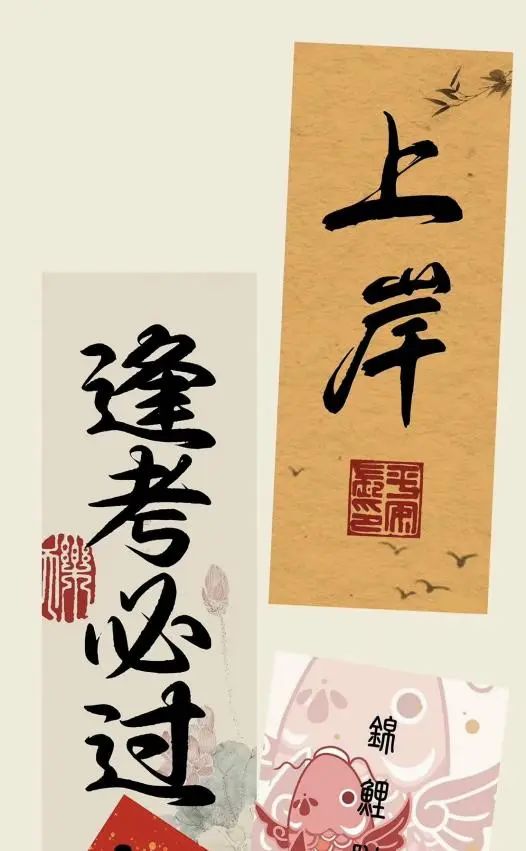 上岸
逢考必过
錦鯉